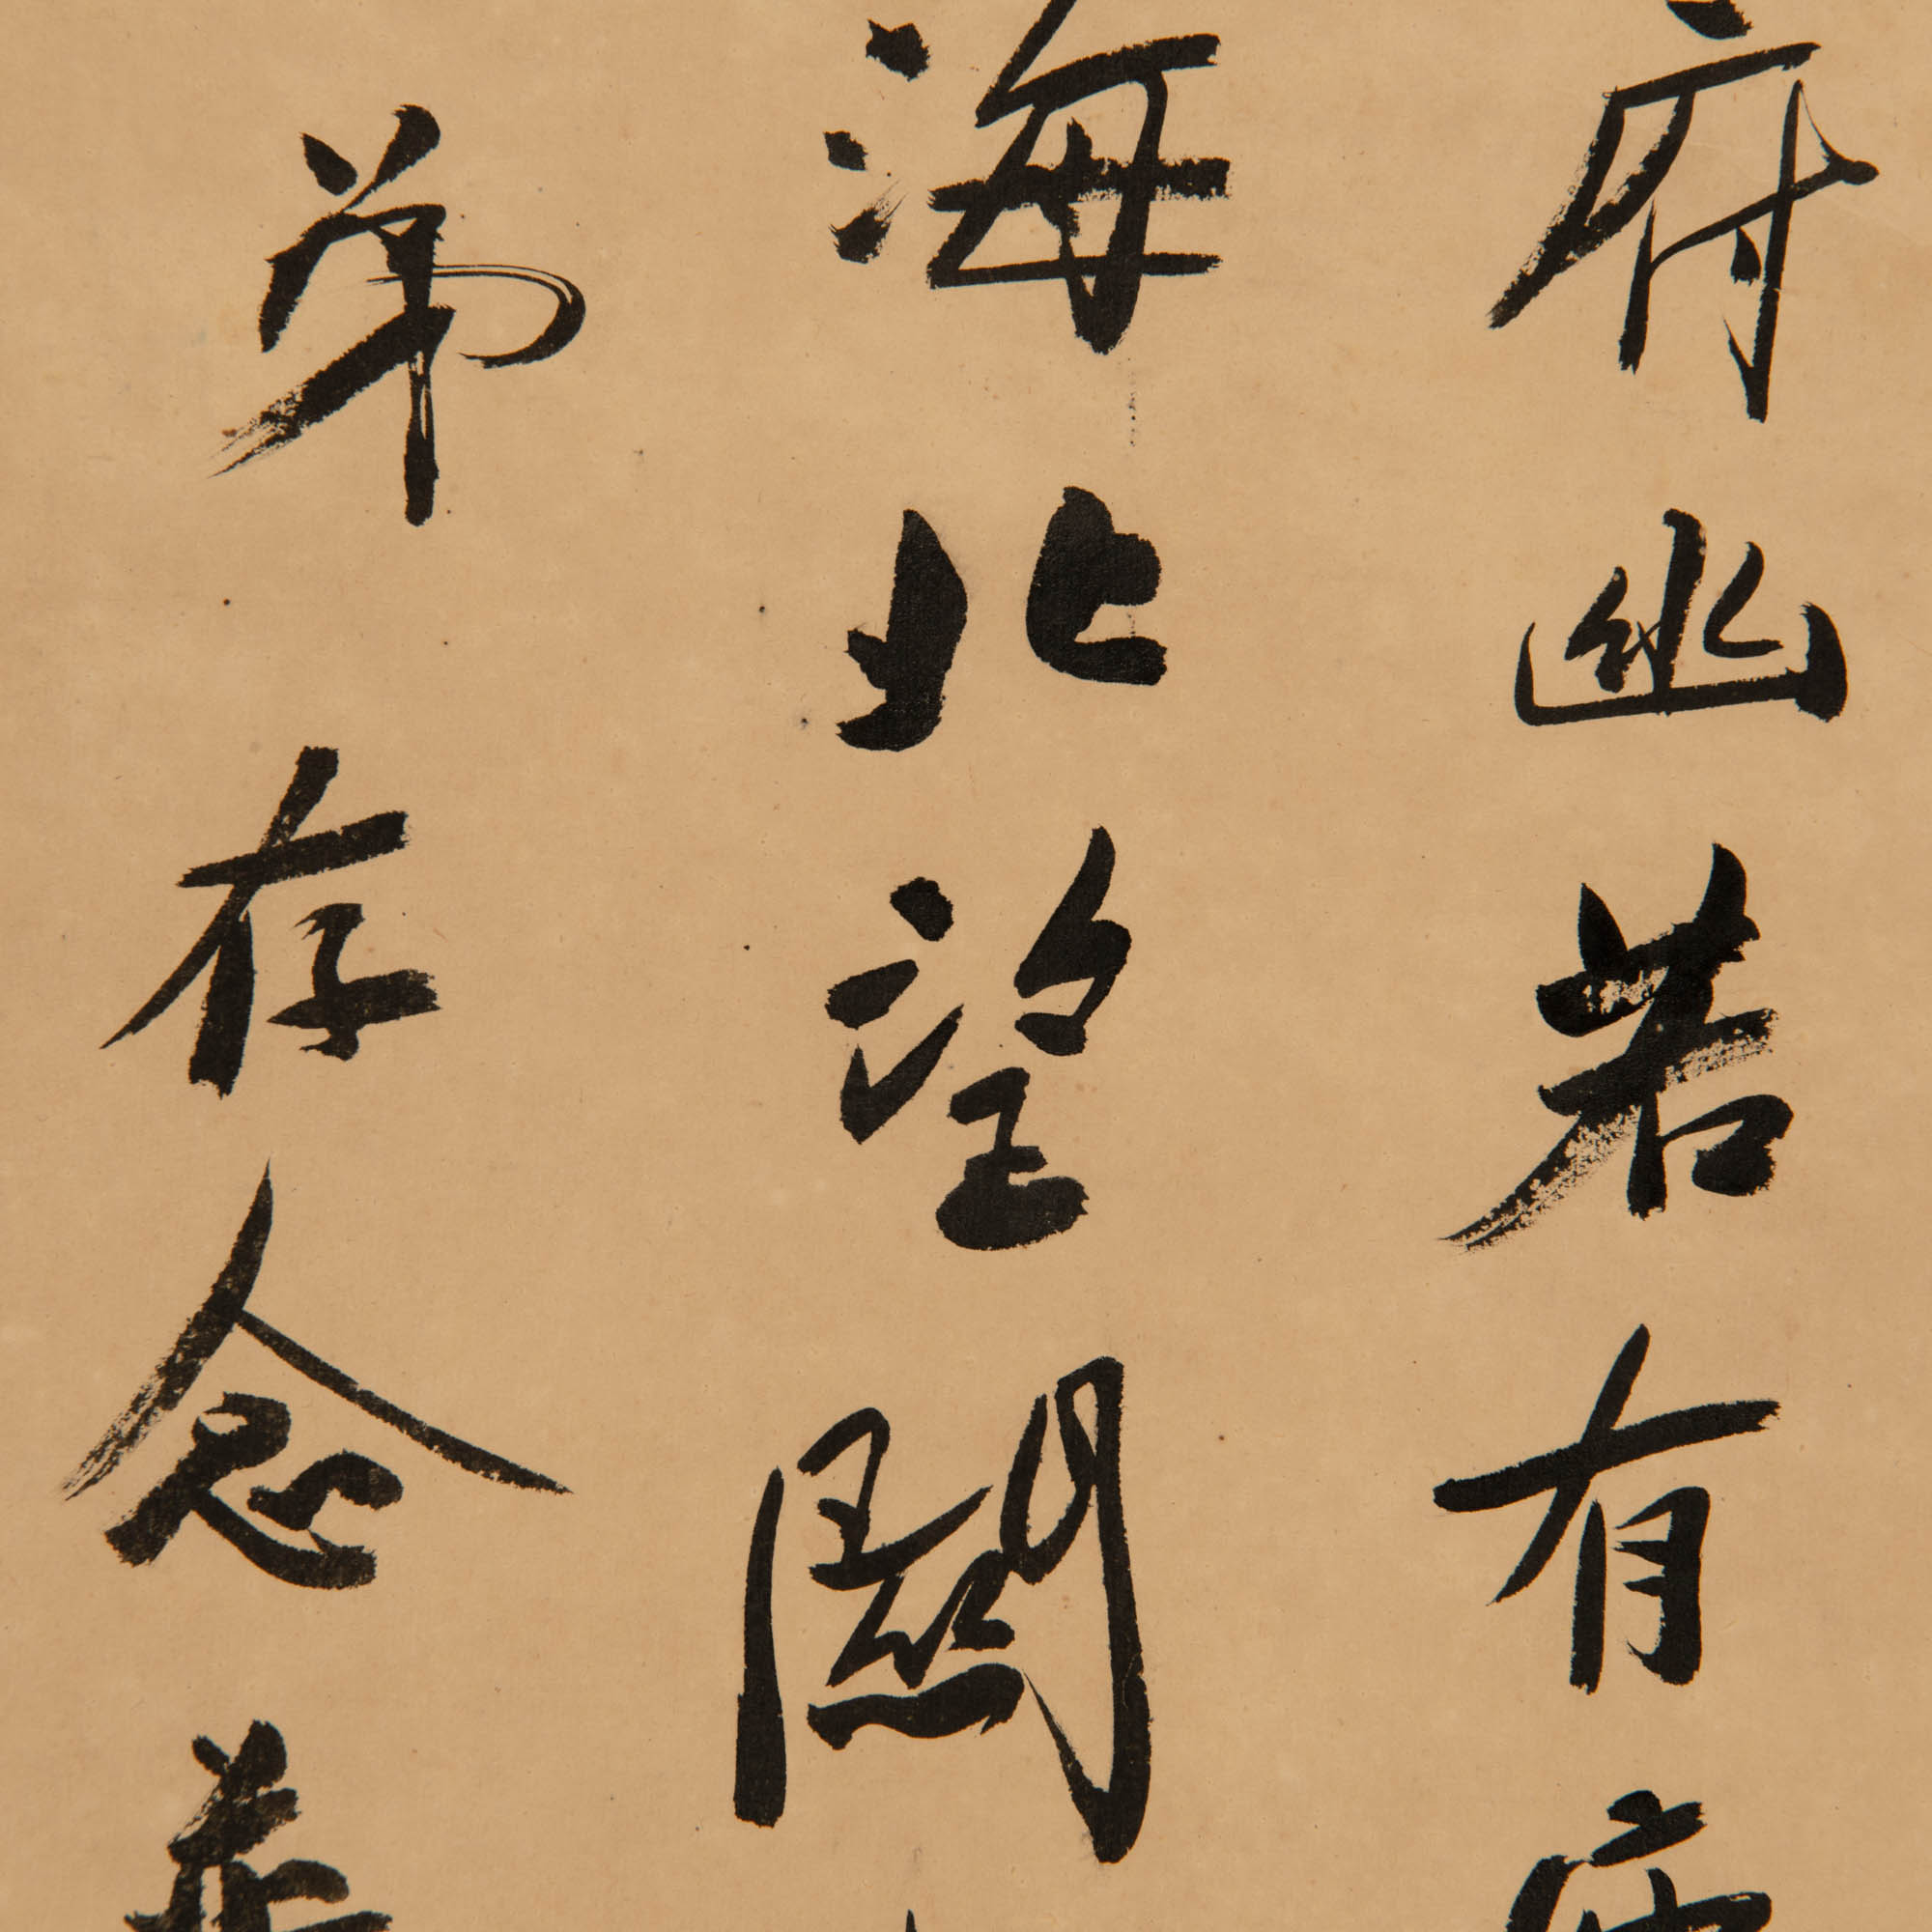 府幽若有
海北望關
弟存念